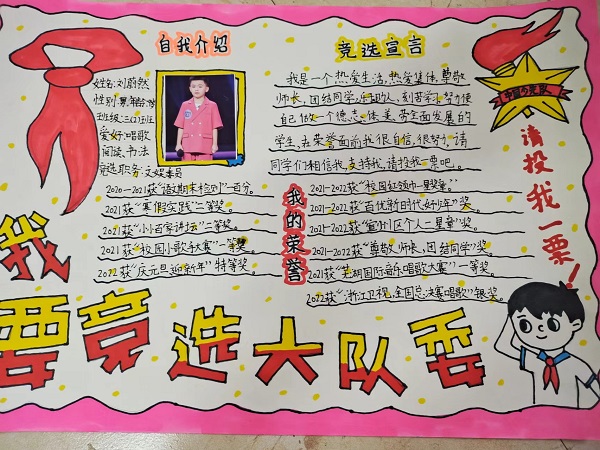 自我介绍
姓名:刘蔚然
性别:男 年龄:9岁
班级:三(2)班
爱好:唱歌
阅读、书法
竞选职务:文娱委员
竞选宣言
我是一个热爱生活,热爱集体,尊敬
师长,团结同学,乐于助人,刻苦学习,努力使
自己做一个德、智、体、美、劳全面发展的
学生,在荣誉面前我很自信,很努力,请
同学们相信我,支持我,请投我一票吧。
我的荣誉
2020-2021获“语数期末检测”一百分。
2021获“寒假实践”二等奖。
2021获“小小百家讲坛”二等奖。
2021获“校园小歌手大赛”一等奖。
2022获“庆元旦迎新年”特等奖。
2021-2022获“校园红领巾一星奖章”。
2021-2022获“百优新时代好少年”奖。
2021-2022获“个人二星章”奖。
2021-2022获“尊敬师长,团结同学”奖。
2021获“芜湖国际音乐唱歌大赛”一等奖。
2022获“浙江卫视,全国总决赛唱歌”银奖。
请投我一票!
我
要竞选大队委